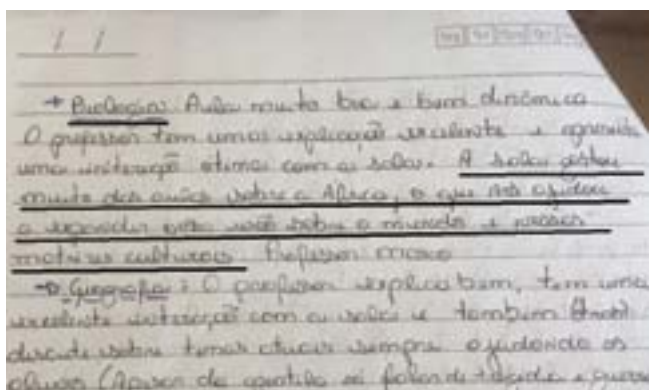 / /
→ Biologia: Aula muito boa e bem dinâmica
O professor tem uma explicação excelente e apresenta
uma interação ótima com a sala. A sala gostou
muito das aulas sobre a África, o que nos ajudou
a expandir visão sobre o mundo e nossas
matrizes culturais. Professor
→ Geografia: O professor explica bem, tem uma
excelente interação com a sala e também
discute sobre temas atuais sempre ajudando os
alunos (Apesar da apostila só falar de